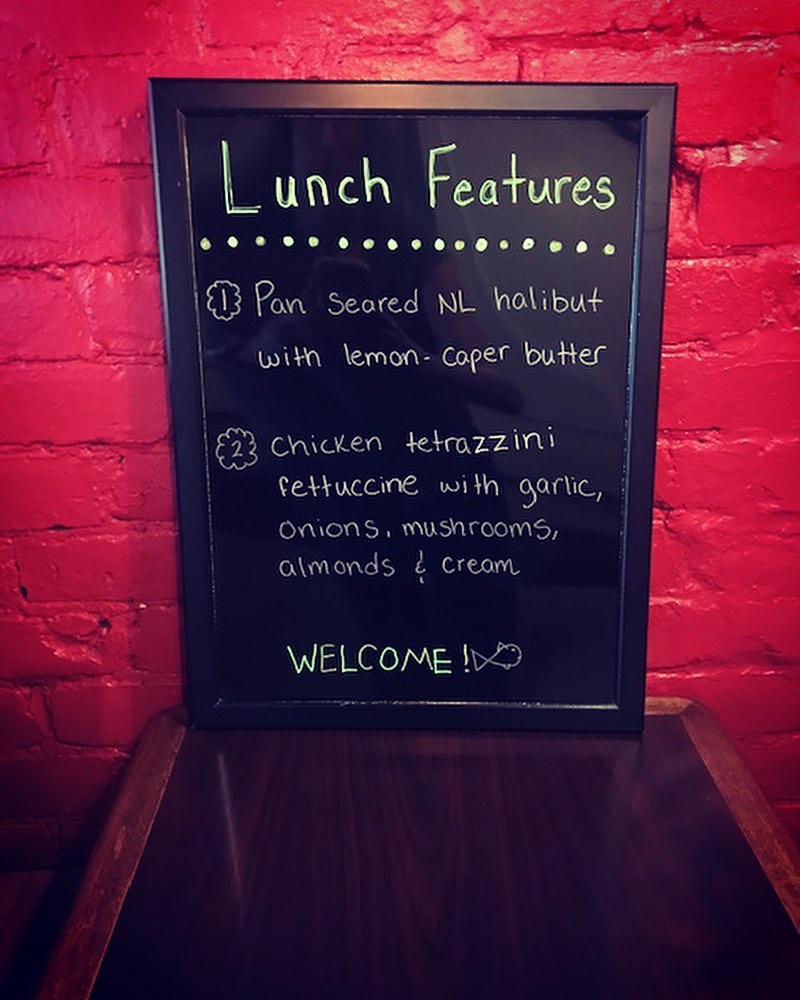 Lunch Features
1 Pan Seared NL halibut
with lemon-caper butter
2 Chicken tetrazzini
fettuccine with garlic,
onions, mushrooms,
almonds & cream
WELCOME!